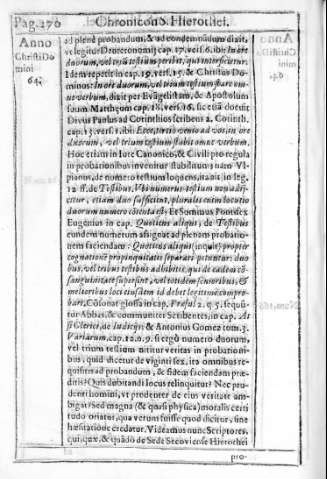 Pag. 270 Chronicon D. Hierothei.
Anno
Christi Do
mini
64.
ad plenè probandum, & ad condemnandum dixit,
vt legitur Deuteronomij cap. 17. vers. 6. ibi: In ore
duorum, vel triũ testium peribit, qui interficietur.
Idem repetit in cap. 19. vers. 15. & Christus Do-
minus: In ore duorum, vel trium testium stare om-
ne verbum, dixit per Evangelistam, & Apostolum
suum Matthęum cap. 18. vers. 16. sic etiā docuit
Divus Paulus ad Corinthios scribens 2. Corinth.
cap. 13. vers. 1. ibi: Ecce, tertiò venio ad vos, in ore
duorum, vel trium testium stabit omne verbum.
Hoc etiam in Iure Canonico, & Civili pro regula
in probationibus invenitur stabilitum; nam Vl-
pianus, de numero testium loquens, ita ait in leg.
12. ff. de Testibus. Vbi numerus testium non adij-
citur, etiam duo sufficient, pluralis enim locutio
duorum numero cōtēta est: Et Summus Pontifex
Eugenius in cap. Quoties aliqui, de Testibus
eundem numerum assignat ad plenam probatio-
nem faciendam: Quoties aliqui (inquit) propter
cognationē propinquitatis separari petuntur: duo-
bus, vel tribus testibus adhibitis, qui de eadem cō-
sanguinitate supersint, vel totidem senioribus, &
melioribus loci eiusdem id debet legitimè compro-
bari,
sequi-
tur Abbas, & communiter Scribentes, in cap. At
si Clerici, de Iudicijs; & Antonius Gomez tom. 3.
Variarum, cap. 12. n. 9. si ergò numero duorum,
vel trium testium nititur veritas in probationi-
bus, quid dicetur de viginti sex, ita omnibus re-
quisitis ad probandum, & fidem faciendam præ-
ditis? Quis dubitandi locus relinquitur? Nec pru-
denti homini, vt prudenter de eius veritate am-
bigat: sed magna (& quasi physica) moralis certi
tudo oriatur, qua verum fuisse quod dicitur, sine
hæsitatione credatur. Videamus nunc Scriptores,
qui, quæ, & quādo de Sede Secoviense Hierothei
pro-